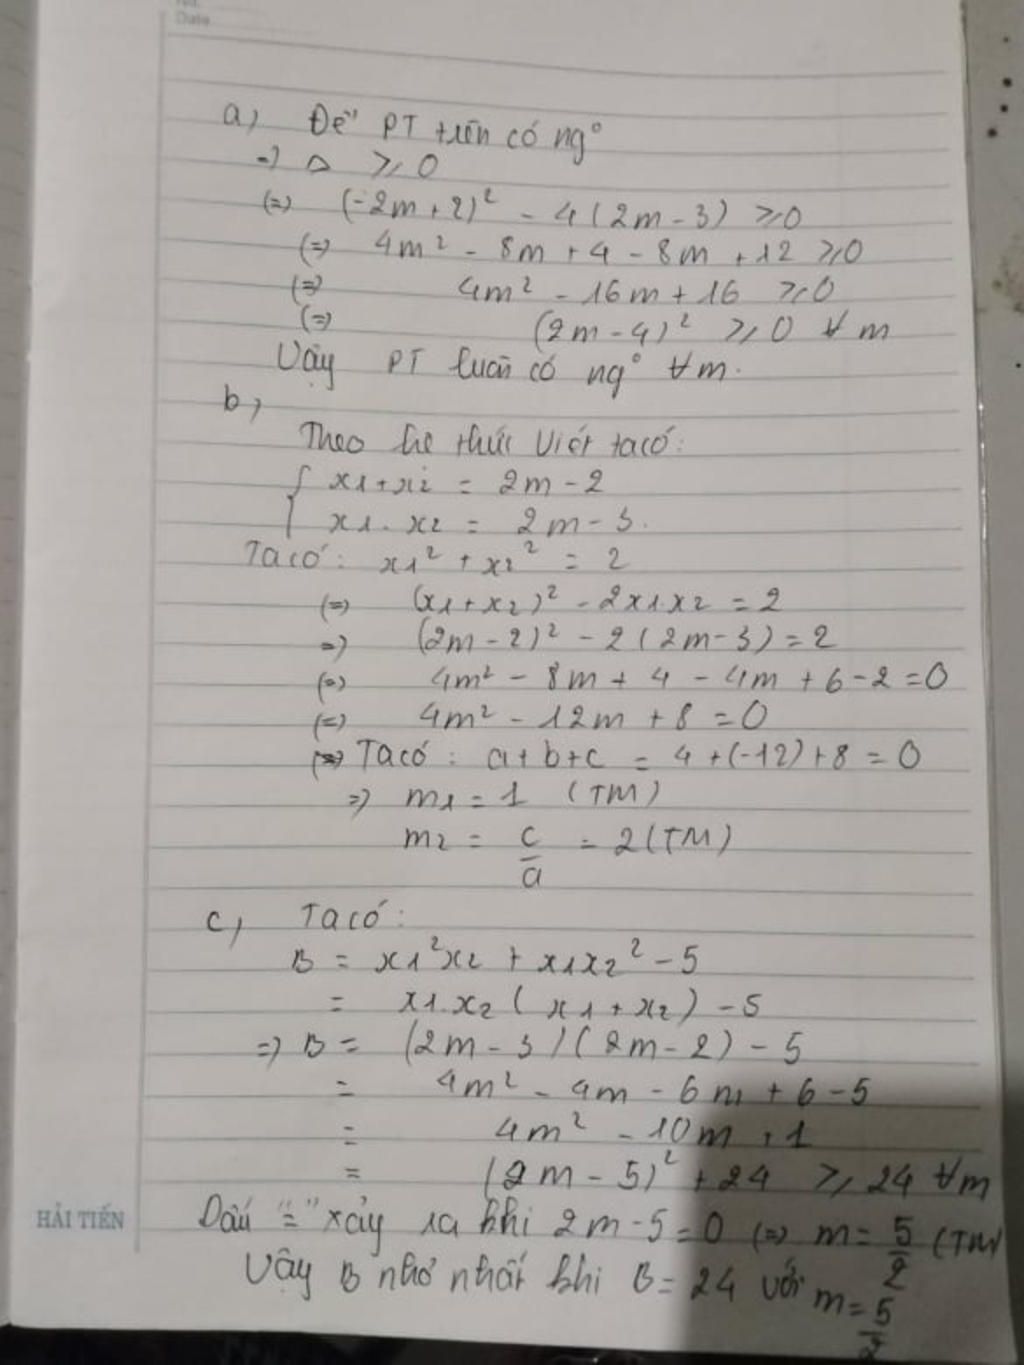 Date
a) Để PT trên có ng°
=) Δ ≥ 0
(=) (-2m + 2)² - 4(2m - 3) ≥ 0
(=) 4m² - 8m + 4 - 8m + 12 ≥ 0
(=) 4m² - 16m + 16 ≥ 0
(=) (2m - 4)² ≥ 0 ∀ m
Vậy PT luôn có ng° ∀m.
b)
Theo hệ thức Viét ta có:
{ x1 + x2 = 2m - 2
x1 . x2 = 2m - 3.
Ta có: x1² + x2² = 2
(=) (x1 + x2)² - 2x1.x2 = 2
=) (2m - 2)² - 2(2m - 3) = 2
(=) 4m² - 8m + 4 - 4m + 6 - 2 = 0
(=) 4m² - 12m + 8 = 0
Ta có: a + b + c = 4 + (-12) + 8 = 0
=) m1 = 1 (TM)
m2 = c/a = 2 (TM)
c) Ta có:
B = x1²x2 + x1x2² - 5
= x1.x2 (x1 + x2) - 5
=) B = (2m - 3)(2m - 2) - 5
= 4m² - 4m - 6m + 6 - 5
= 4m² - 10m + 1
= (2m - 5)² + 24 ≥ 24 ∀m
Dấu "=" xảy ra khi 2m - 5 = 0 (=) m = 5/2 (TM)
Vậy B nhỏ nhất khi B = 24 với m = 5/2
HẢI TIẾN